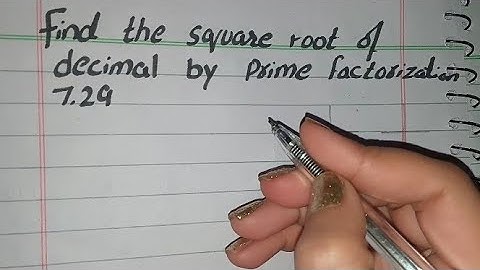 Find the square root of
decimal by Prime factorization
7.29